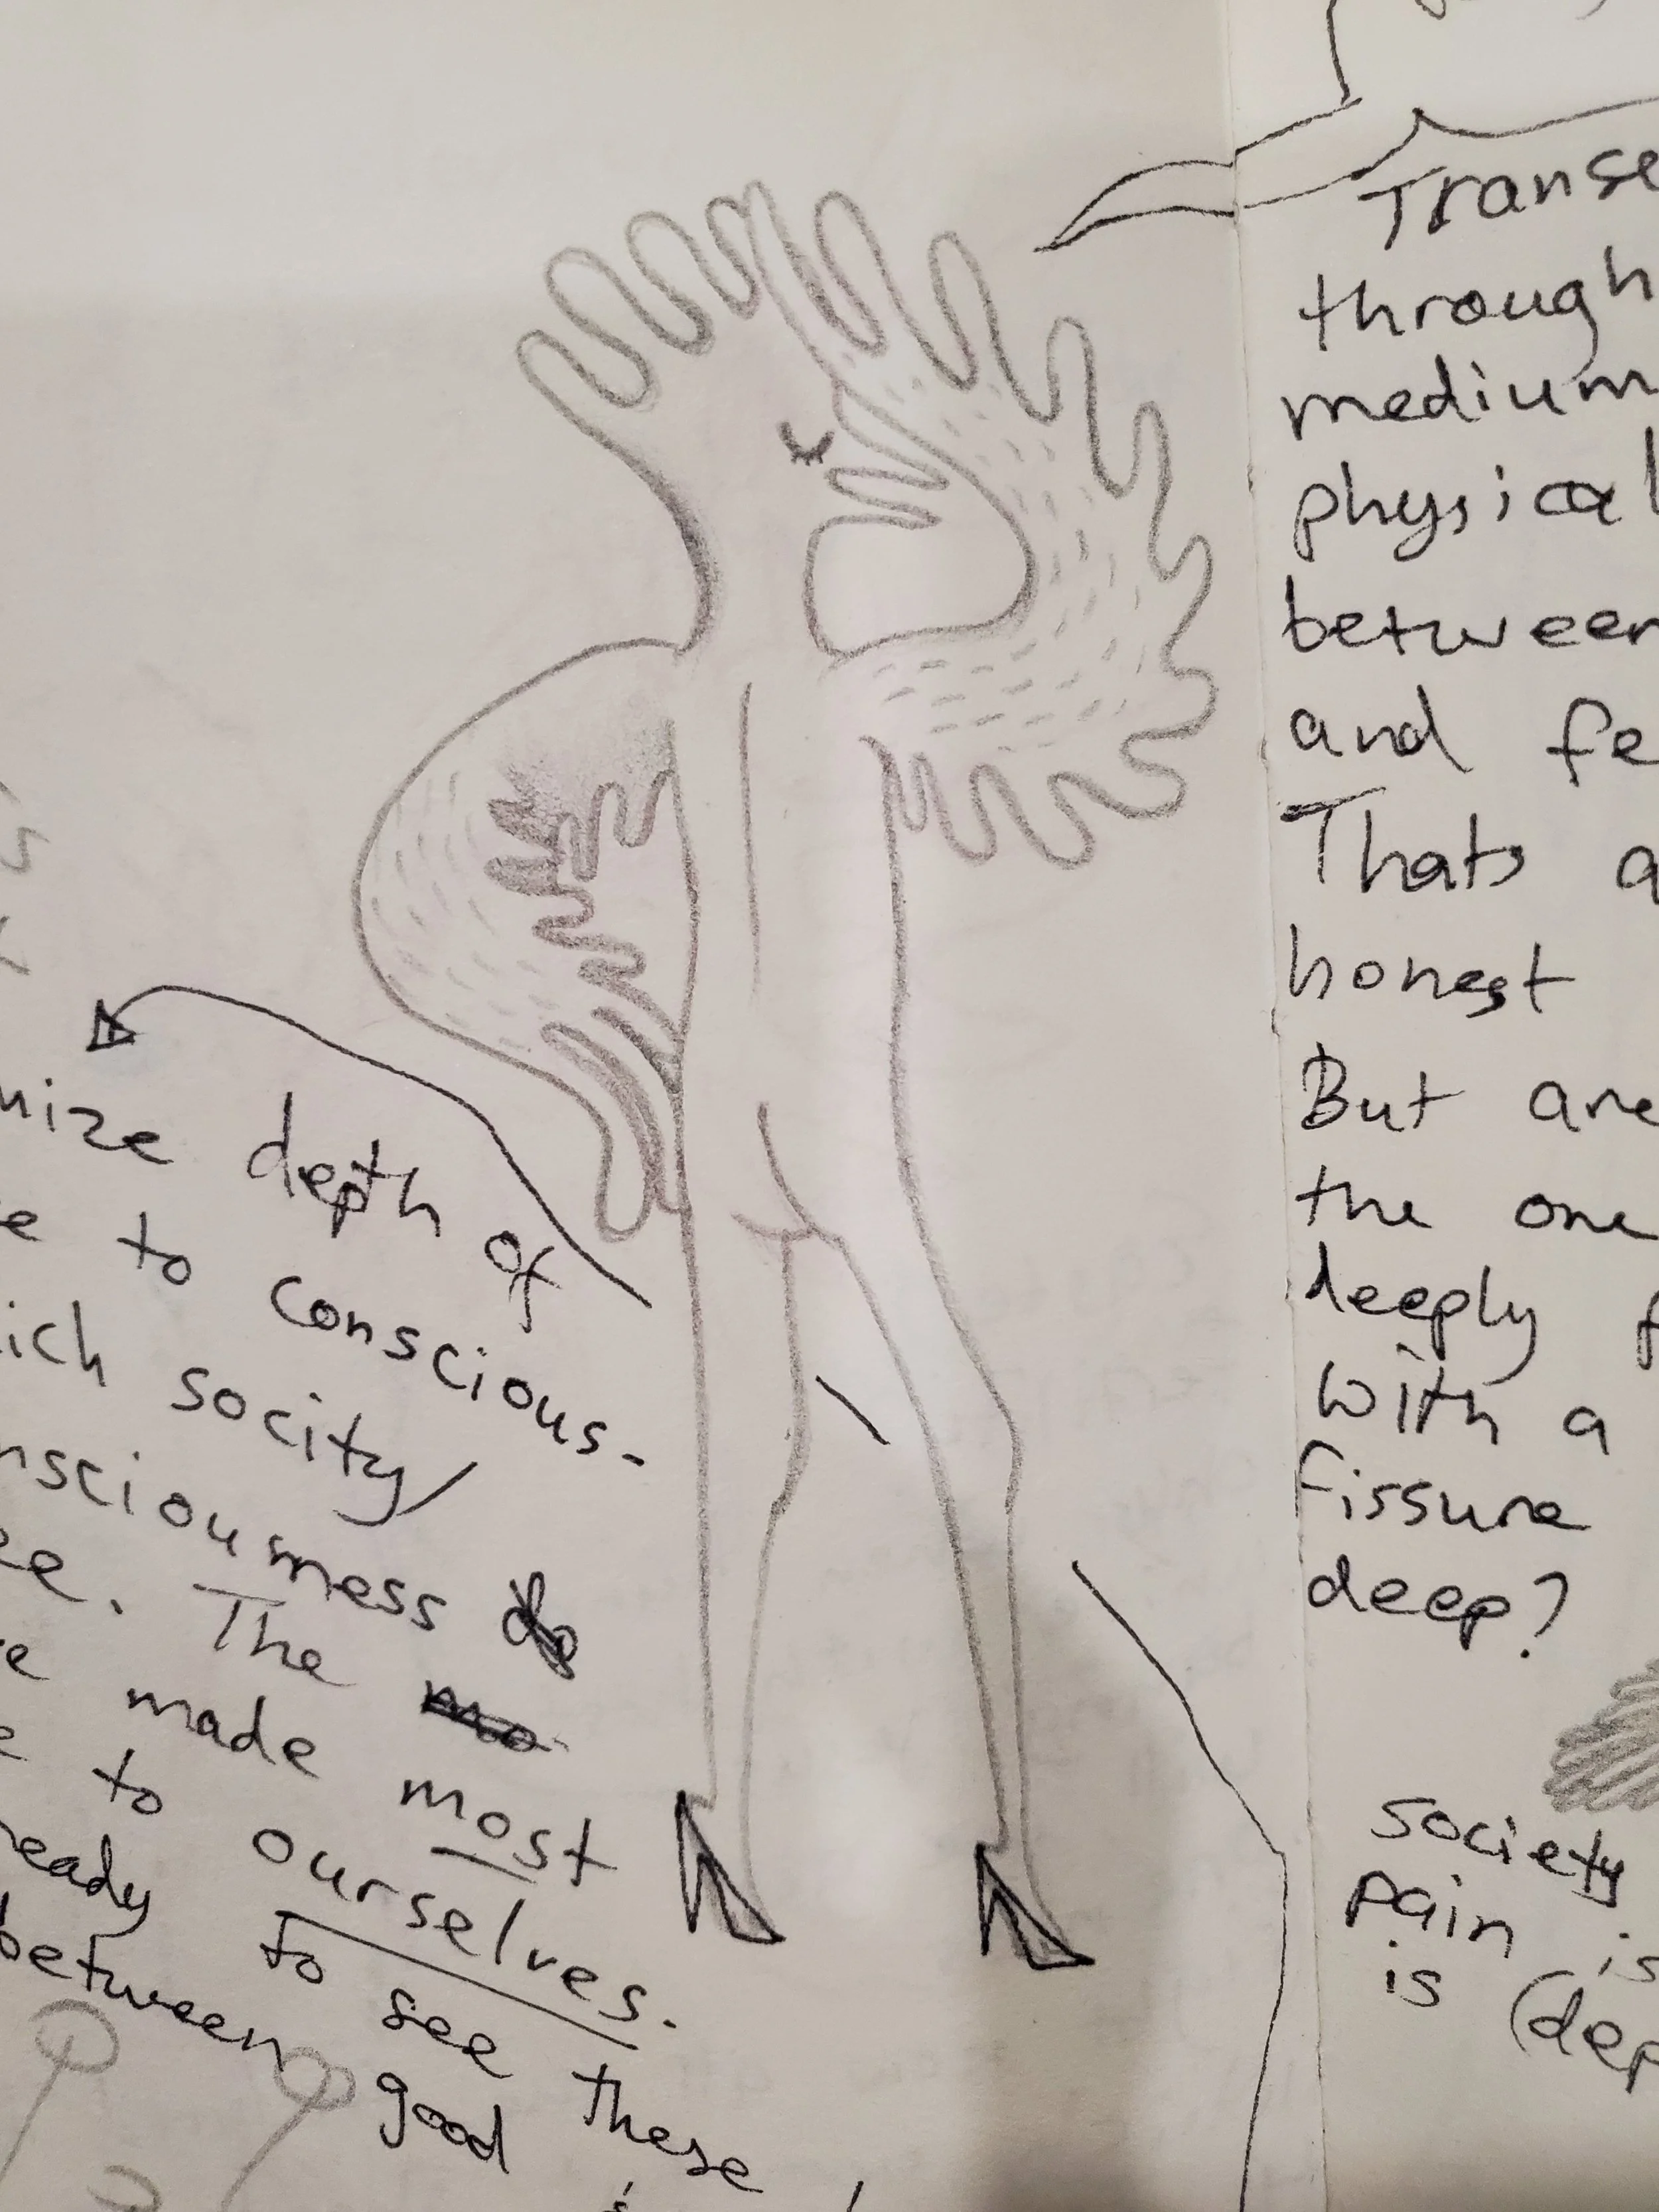 nize depth of
e to conscious-
ich socity/
nsciousness
ee. The
e made most
e to ourselves.
ready to see these
between good
Transe
through
medium
physical
between
and fe
Thats a
honest
But are
the one
deeply f
with a
fissure
deep?
society
pain is
is (dep